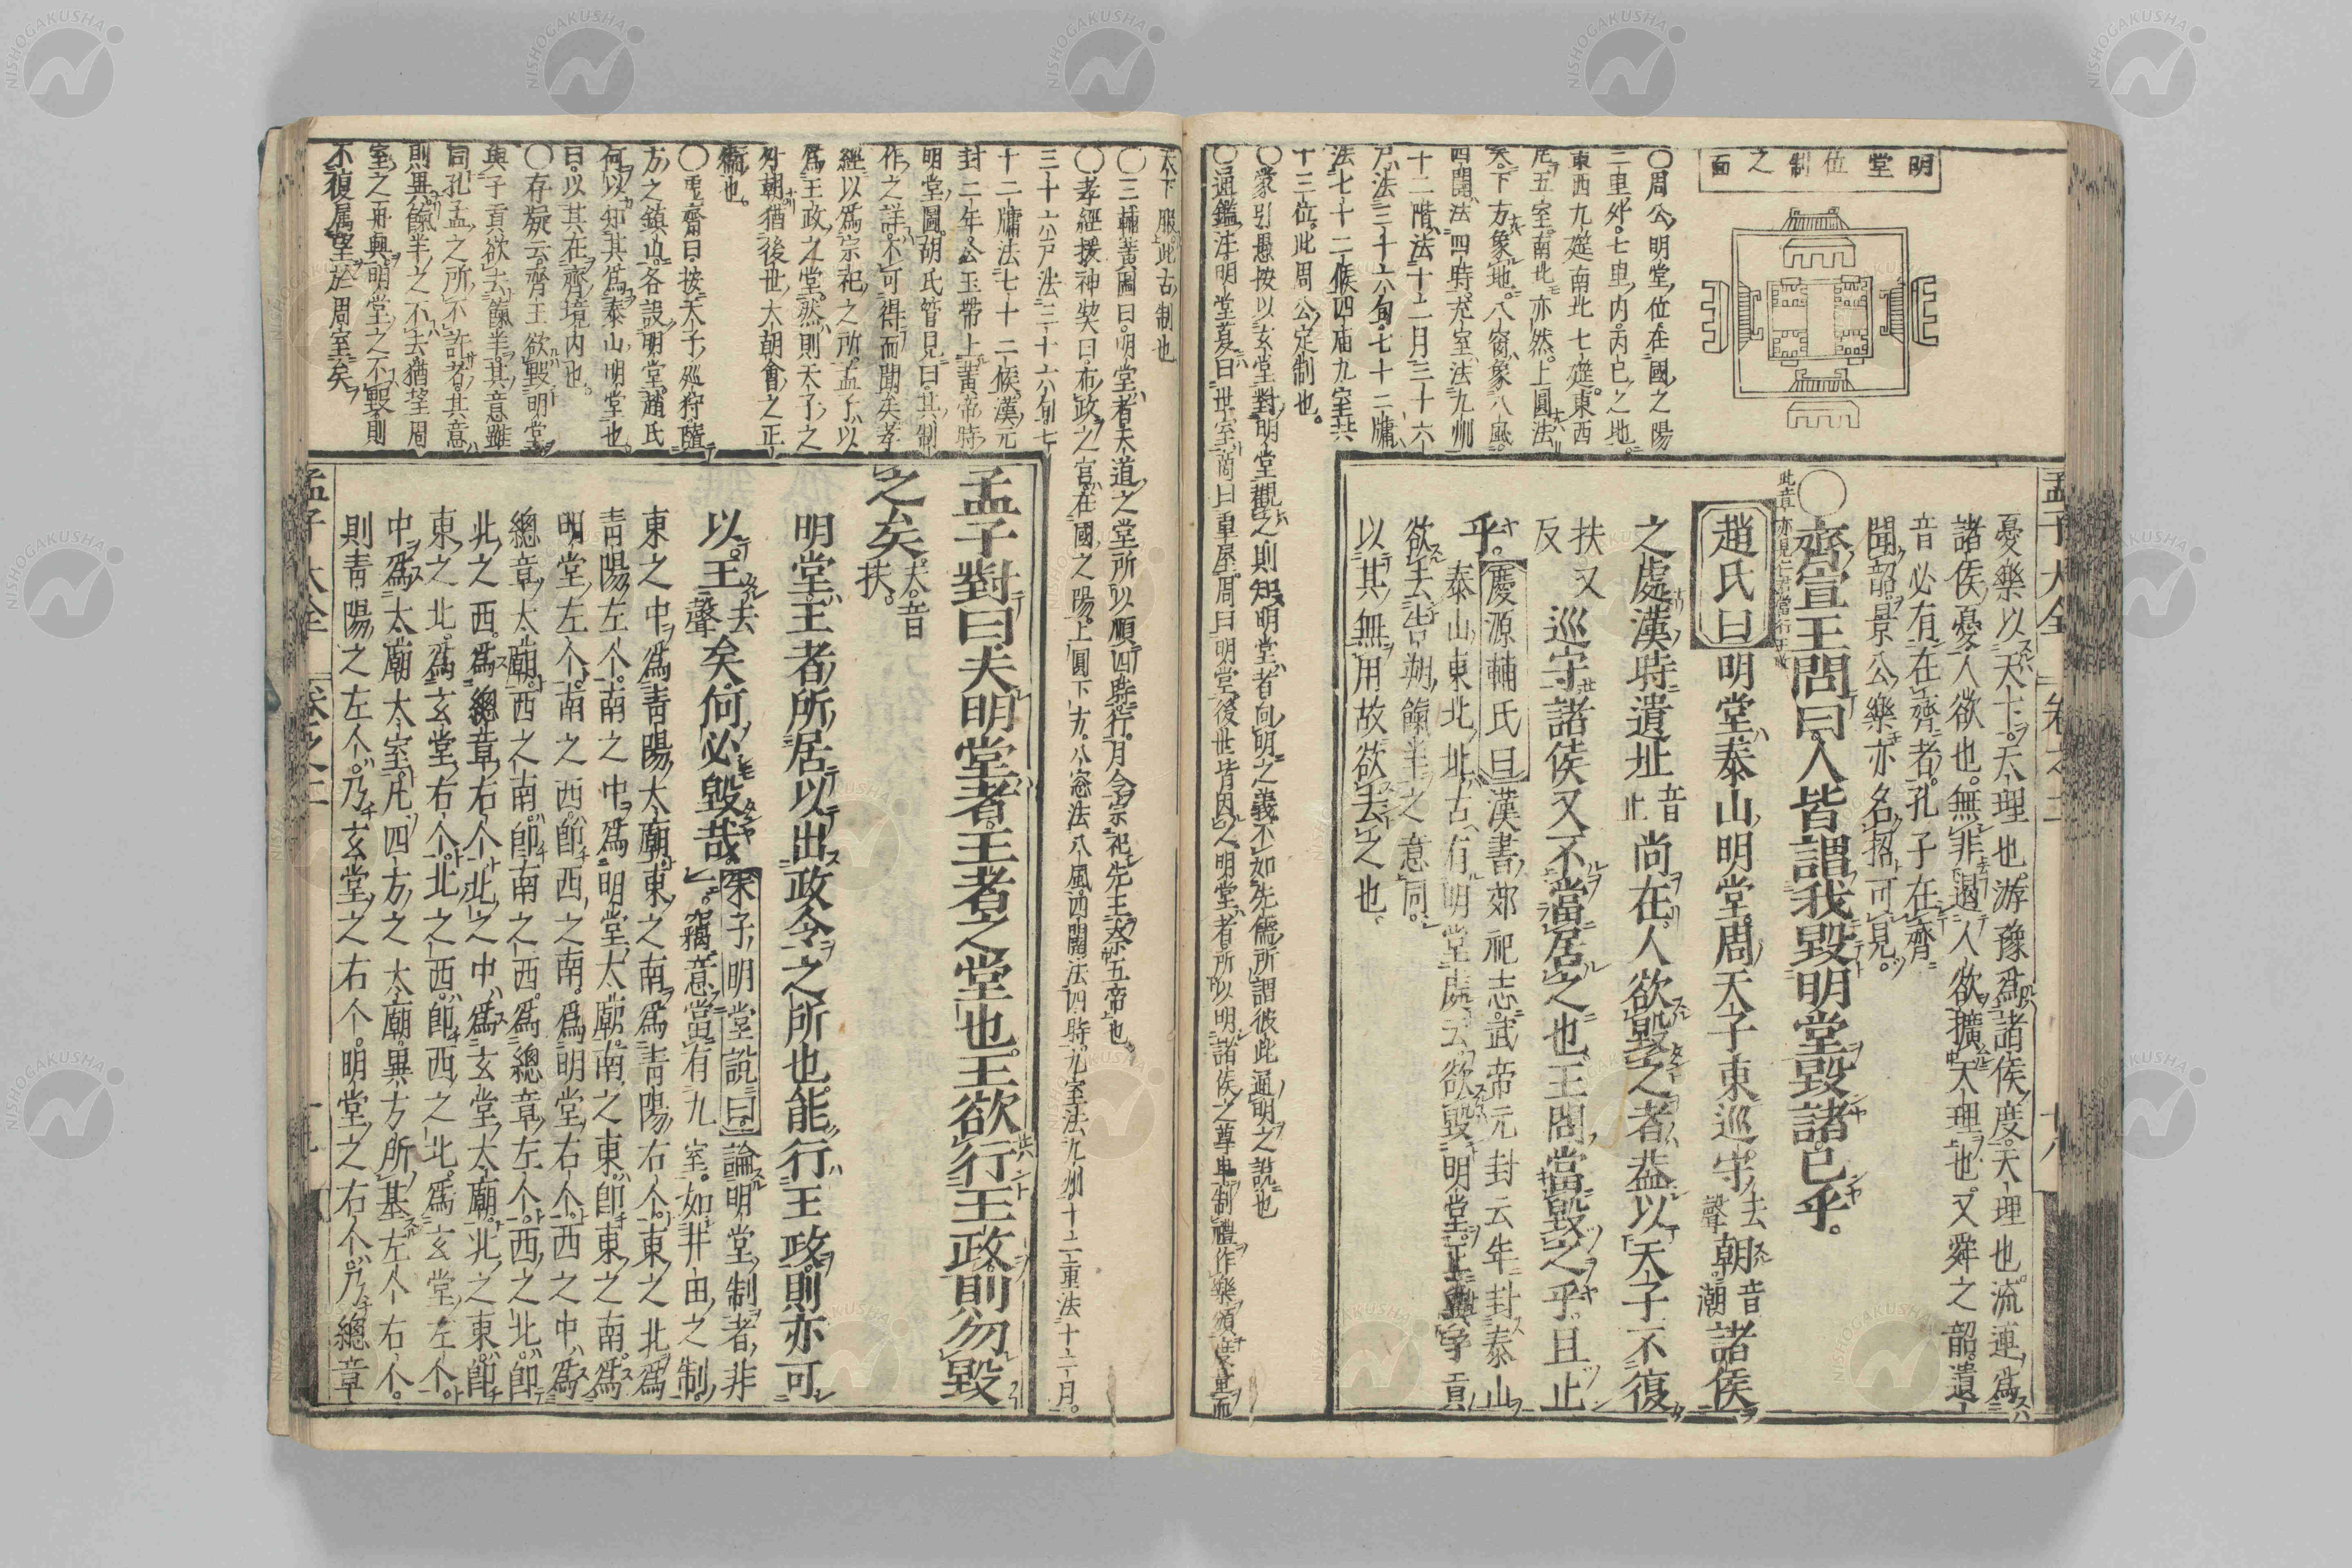 明堂位制之面
〇周公明堂位在國之陽
三里外七里內丙巳之地
東西九筵南北七筵東西
九五室南北亦然上圓法
天下方象地八窗象八風
四闥法四時九室法九州
十二階法十二月三十六
戶法三十六旬七十二牖
法七十二候四庙九室共
十三位此周公定制也
〇蒙引愚按以玄堂對明堂觀之則知明堂者向明之義不如先儒所謂彼此通明之說也
〇通鑑注明堂夏曰世室商曰重屋周曰明堂後世皆因之明堂者所以明諸侯之尊卑制禮作樂頒度量而
孟子大全 卷之二 十八
憂樂以天下天理也游豫爲諸侯度天理也流連爲
諸侯憂人欲也無非遏人欲擴天理也又舜之韶遺
音必有在齊者孔子在齊
聞韶景公樂亦名招可見
〇齊宣王問曰人皆謂我毀明堂毀諸已乎
趙氏曰明堂泰山明堂周天子東巡守去聲朝音潮諸侯
之處漢時遺址音止尚在人欲毀之者葢以天子不復
扶又反巡守諸侯又不當居之也王問當毀之乎且止
乎慶源輔氏曰漢書郊祀志武帝元封元年封泰山
泰山東北址古有明堂處云欲毀明堂正與子貢
欲去告朔餼羊之意同
以其無用故欲去之也
天下服此古制也
〇三輔黃圖曰明堂者天道之堂所以順四時行月令宗祀先王祭五帝也
〇孝經援神契曰布政之宮在國之陽上圓下方八窓法八風四闥法四時九室法九州十二重法十二月
三十六戶法三十六旬七
十二牖法七十二候漢元
封二年公玉帶上黃帝時
明堂圖胡氏管見曰其制
作之詳不可得而聞矣孝
經以爲宗祀之所孟子以
爲王政之堂然則天子之
外朝猶後世大朝會之正
衙也
〇電齋曰按天子巡狩隨
方之鎮山各設明堂趙氏
何以知其爲泰山明堂也
曰以其在齊境內也
〇存疑云齊王欲毀明堂
與子貢欲去餼羊其意雖
同孔孟之所不許者其意
則異餼羊之不去猶望周
室之再興明堂之不毀則
不復屬望於周室矣
孟子對曰夫明堂者王者之堂也王欲行王政則勿毀
之矣夫音扶
明堂王者所居以出政令之所也能行王政則亦可
以王去聲矣何必毀哉朱子明堂說曰論明堂制者非
一竊意當有九室如井田之制
東之中爲青陽太廟東之南爲青陽右个東之北爲
青陽左个南之中爲明堂太廟南之東卽東之南爲
明堂左个南之西卽西之南爲明堂右个西之中爲
總章太廟西之南卽南之西爲總章左个西之北卽
北之西爲總章右个北之中爲玄堂太廟北之東卽
東之北爲玄堂右个北之西卽西之北爲玄堂左个
中爲太廟大室凡四方之太廟異方所基左个右个
則青陽之左个乃玄堂之右个明堂之右个乃總章
孟子大全 卷之二
NISHOGAKUSHA